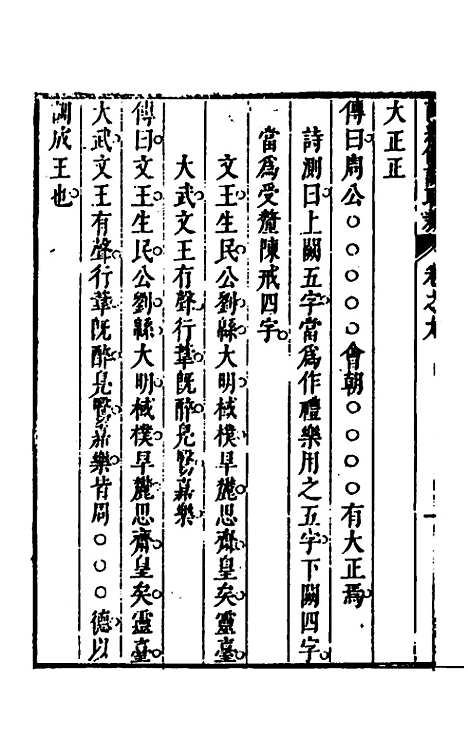 卷之九
一
大正正
傳曰周公○○○○○會朝○○○○有大正焉
詩測曰上闕五字當爲作禮樂用之五字下闕四字
當爲受釐陳戒四字
文王生民公劉緜大明棫樸旱麓思齋皇矣靈臺
大武文王有聲行葦旣醉鳧鷖嘉樂
傳曰文王生民公劉緜大明棫樸旱麓思齋皇矣靈臺
大武文王有聲行葦旣醉鳧鷖嘉樂皆周○○○德以
訓成王也